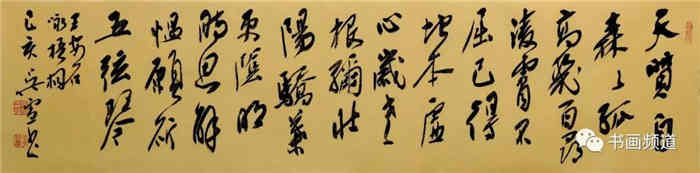 天質自
森々孤
高幾百尋
凌霄不
屈己得
地本虛
心歲老
根彌壯
陽驕葉
更陰明
時思解
慍願斫
五弦琴
王安石
詠梧桐
己亥
书画频道